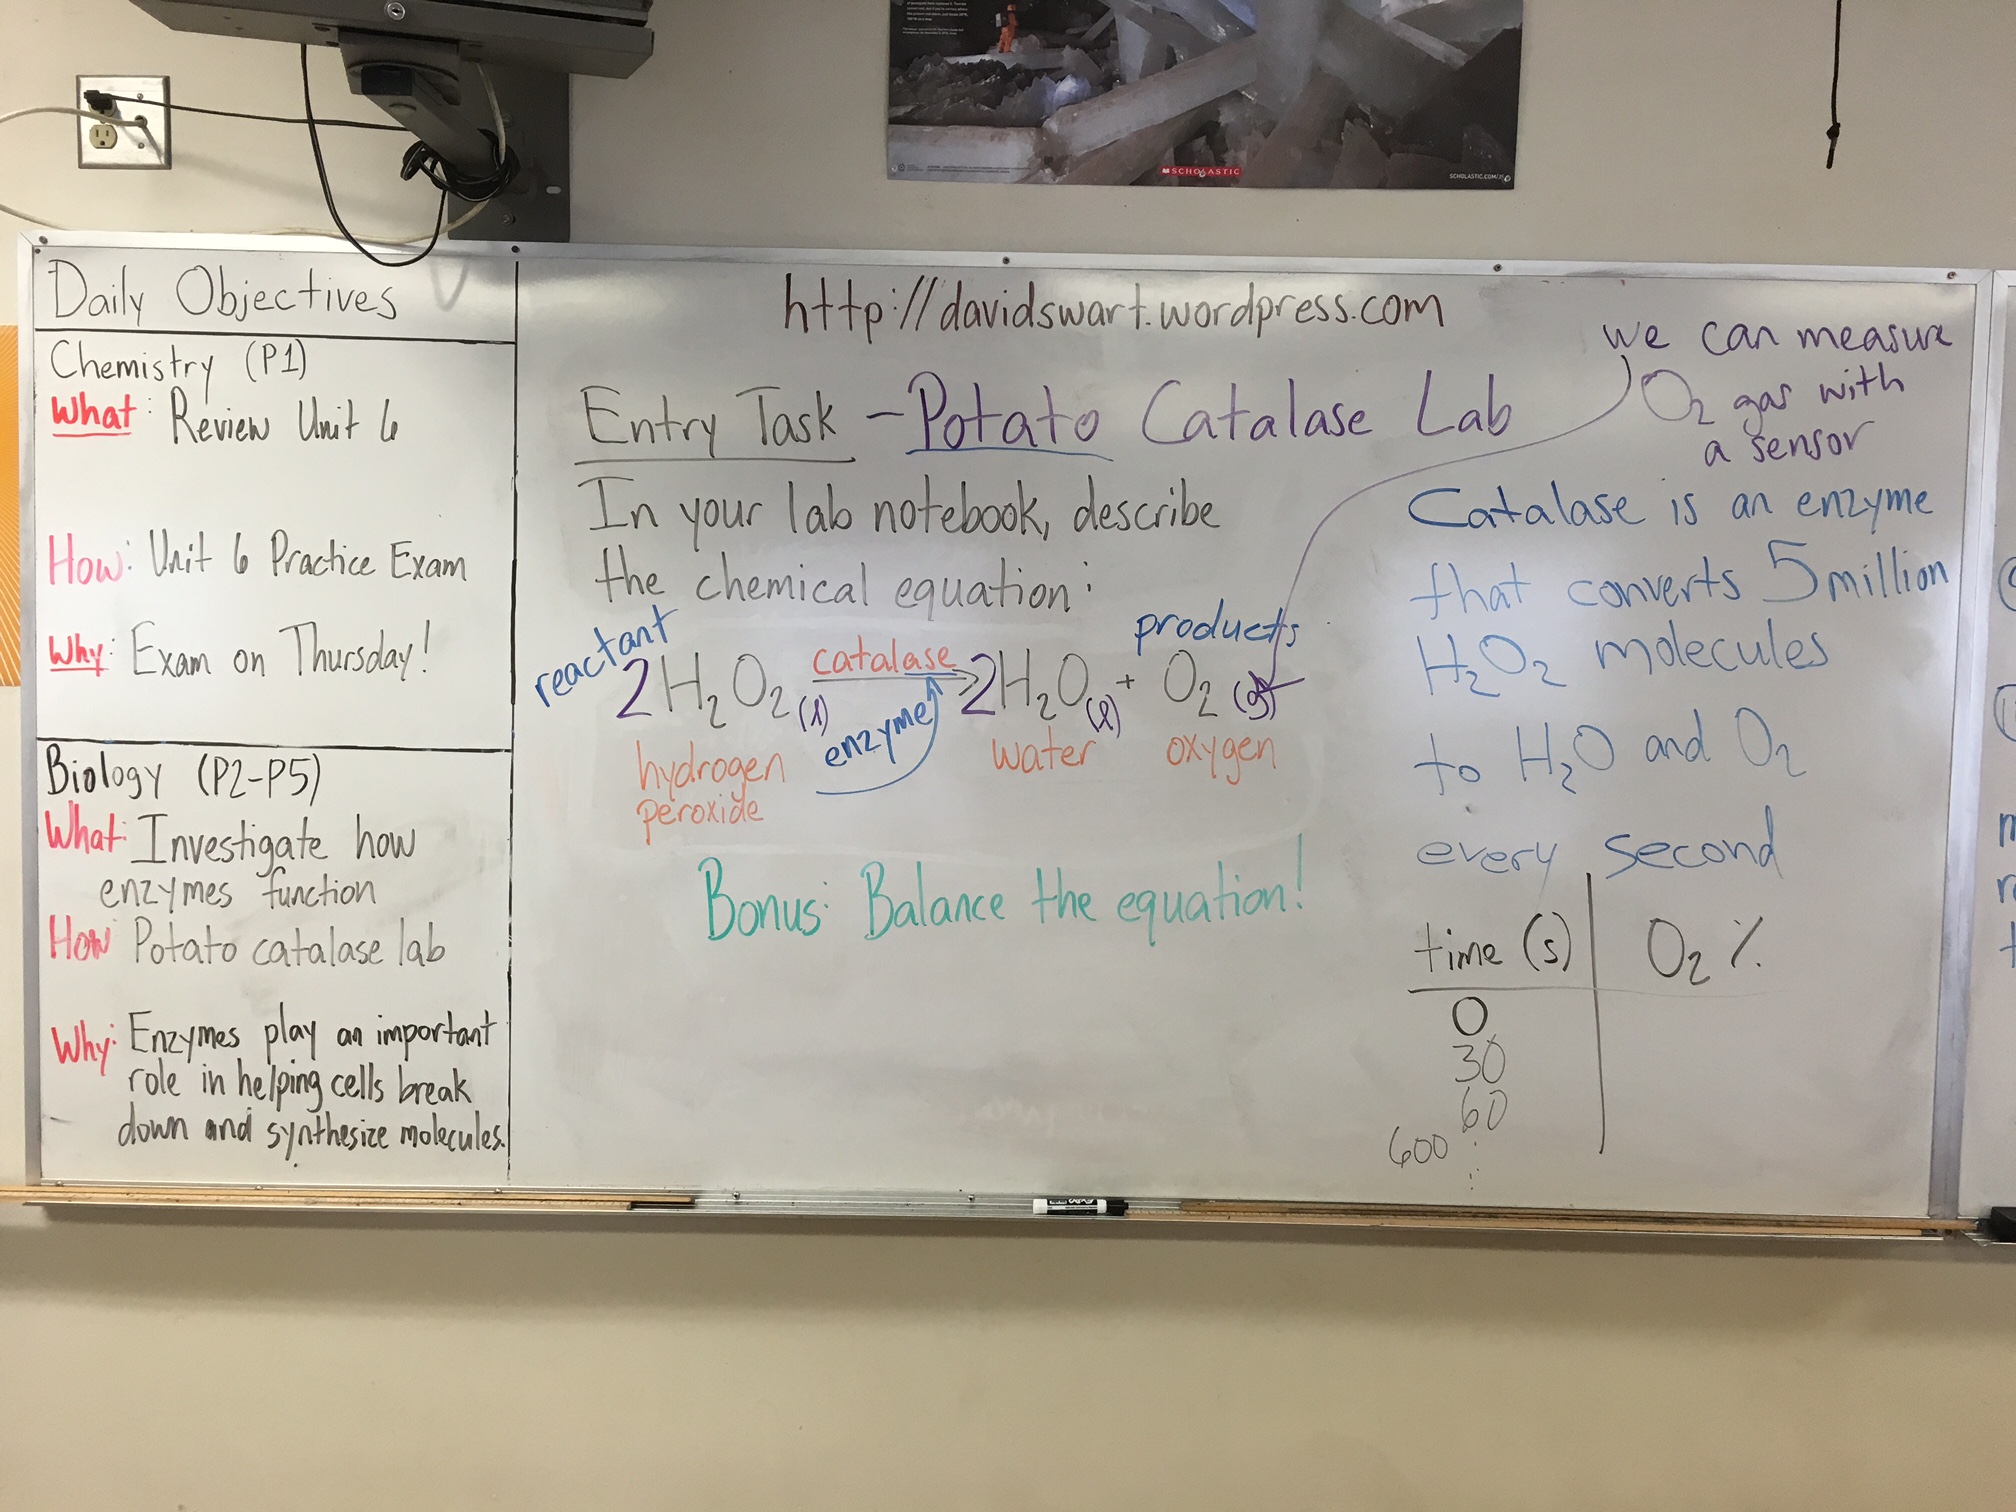 SCHOLASTIC
SCHOLASTIC.COM/
Daily Objectives
Chemistry (P1)
What: Review Unit 6
How: Unit 6 Practice Exam
Why: Exam on Thursday!
Biology (P2-P5)
What: Investigate how
enzymes function
How Potato catalase lab
Why: Enzymes play an important
role in helping cells break
down and synthesize molecules.
http://davidswart.wordpress.com
Entry Task - Potato Catalase Lab
In your lab notebook, describe
the chemical equation:
reactant
products
catalase
2H₂O₂(l) → 2H₂O(l) + O₂(g)
enzyme
hydrogen
peroxide
water
oxygen
Bonus: Balance the equation!
we can measure
O₂ gas with
a sensor
Catalase is an enzyme
that converts 5 million
H₂O₂ molecules
to H₂O and O₂
every second
time (s) O₂ %
0
30
60
600